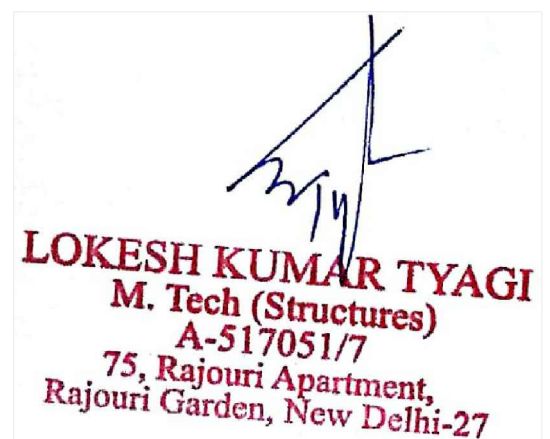 LOKESH KUMAR TYAGI
M. Tech (Structures)
A-517051/7
75, Rajouri Apartment,
Rajouri Garden, New Delhi-27